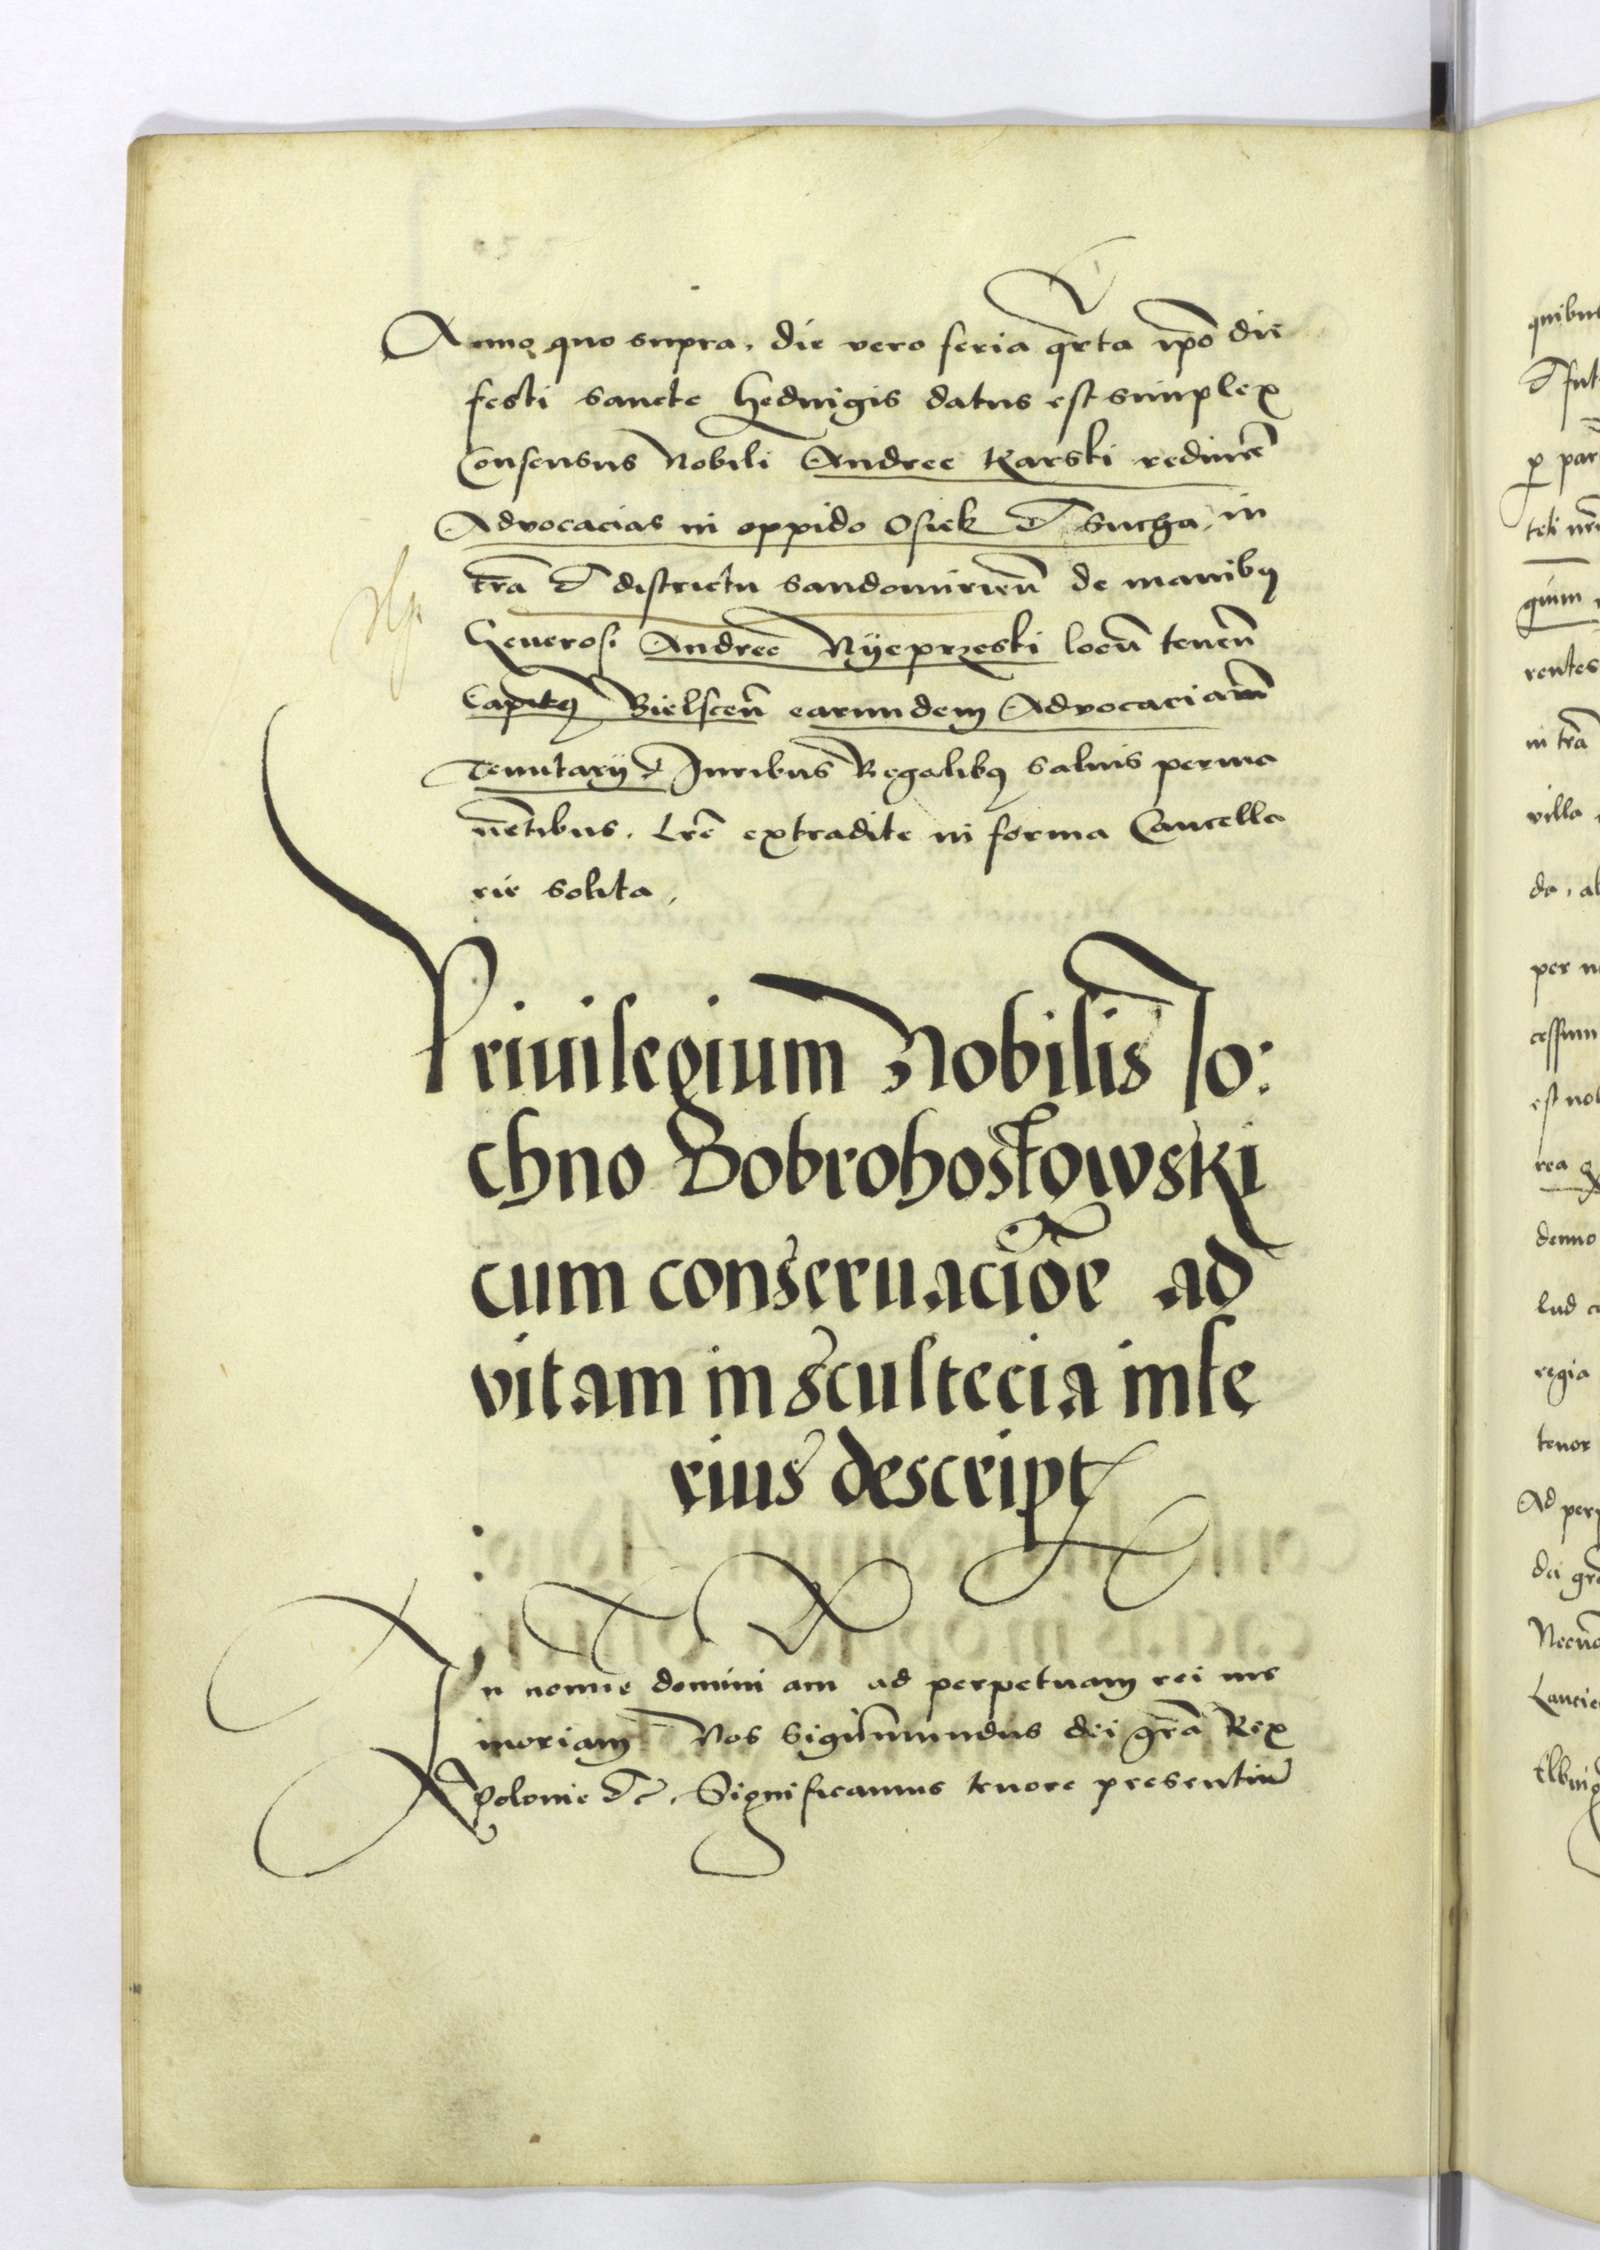 Anno quo supra, die vero feria qrta ipo die
festi sancte Hedwigis datus est simplex
Consensus Nobili Andree Karski redimere
Advocacias in oppido Osiek et Sucha, in
tra et districtu Sandomirien de manibus
Generosi Andree Nyeprzeski locu tenen
Capitis Bielscen earundem Advocaciarum
Tenutarij et Juribus Regalibus salvis perma
netibus. Lre extradite in forma Cancella
rie solita,
Privilegium Nobilis Io:
chno Bobrohostowski
cum conservacione ad
vitam in scultecia infe
rius descript
In nomie domini am ad perpetuam rei me
moriam Nos Sigismundus dei gra Rex
Polonie etc. Significamus tenore presentiu
quibus
per par
rentes
in tra
villa
da, al
per
cessum
est
rea
denuo
lud
regia
tenor
Ad perp
dei gra